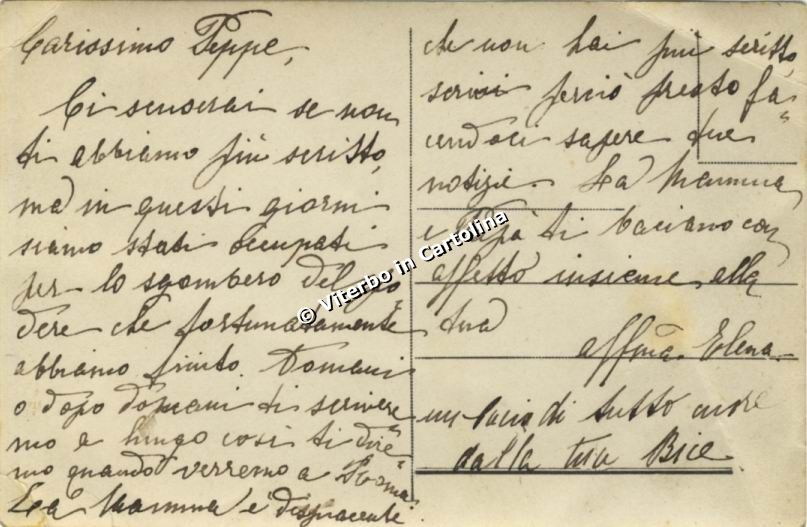 Carissimo Peppe,
Ci scuserai se non
ti abbiamo più scritto,
ma in questi giorni
siamo stati occupati
per lo sgombero del po=
dere che fortunatamente
abbiamo finito. Domani
o dopo domani ti scrivere=
mo a lungo così ti dire=
mo quando verremo a Roma.
La Mamma è dispiacente
che non hai più scritto,
scrivi perciò presto fa=
cendoci sapere tue
notizie. La Mamma
e Papà ti baciano con
affetto insieme alla
tua
affma. Elena.
un bacio di tutto cuore
dalla tua Bice
© Viterbo in Cartolina